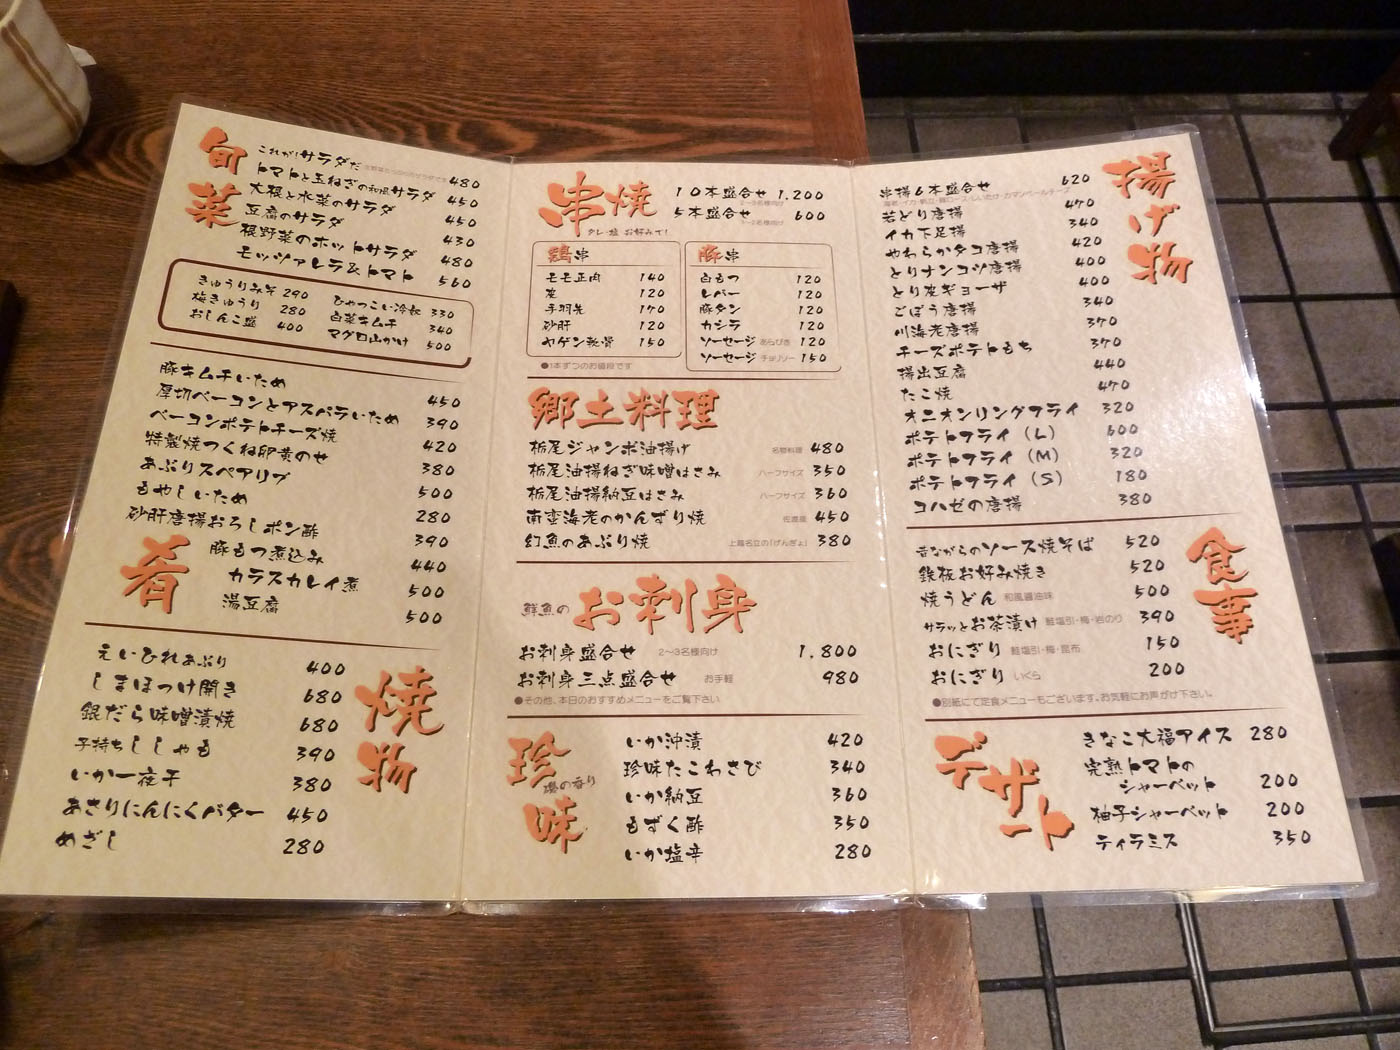 旬菜
これが!サラダだ 480
トマトと玉ねぎの和風サラダ 450
大根と水菜のサラダ 450
豆腐のサラダ 430
根野菜のホットサラダ 480
モッツァレラ&トマト 560
きゅうりみそ 290
梅きゅうり 280
おしんこ盛 400
ひゃっこい冷奴 330
白菜キムチ 340
マグロ山かけ 500
豚キムチいため 450
厚切ベーコンとアスパラいため 390
ベーコンポテトチーズ焼 420
特製焼つくね卵黄のせ 380
あぶりスペアリブ 500
もやしいため 280
砂肝唐揚おろしポン酢 390
肴
豚もつ煮込み 440
カラスカレイ煮 500
湯豆腐 500
焼物
えいひれあぶり 400
しまほっけ開き 680
銀だら味噌漬焼 680
子持ちししゃも 390
いか一夜干 380
あさりにんにくバター 450
めざし 280
串焼
タレ・塩 お好みで!
10本盛合せ 1,200
2〜3名様向け
5本盛合せ 600
1〜2名様向け
鶏串
モモ正肉 140
皮 120
手羽先 170
砂肝 120
ヤゲン軟骨 150
豚串
白もつ 120
レバー 120
豚タン 120
カシラ 120
ソーセージ あらびき 120
ソーセージ チョリソー 150
●1本ずつのお値段です
郷土料理
栃尾ジャンボ油揚げ 名物料理 480
栃尾油揚ねぎ味噌はさみ ハーフサイズ 350
栃尾油揚納豆はさみ ハーフサイズ 360
南蛮海老のかんずり焼 佐渡産 450
幻魚のあぶり焼 上越名立の「げんぎょ」 380
鮮魚のお刺身
お刺身盛合せ 2〜3名様向け 1,800
お刺身三点盛合せ お手軽 980
●その他、本日のおすすめメニューをご覧下さい
珍味
磯の香り
いか沖漬 420
珍味たこわさび 340
いか納豆 360
もずく酢 350
いか塩辛 280
揚げ物
串揚6本盛合せ 620
海老・イカ・帆立・豚ロース・しいたけ・カマンベールチーズ
若どり唐揚 470
イカ下足揚 340
やわらかタコ唐揚 420
とりナンコツ唐揚 400
とり皮ギョーザ 400
ごぼう唐揚 340
川海老唐揚 370
チーズポテトもち 370
揚出豆腐 440
たこ焼 470
オニオンリングフライ 320
ポテトフライ(L) 600
ポテトフライ(M) 320
ポテトフライ(S) 180
コハゼの唐揚 380
食事
昔ながらのソース焼そば 520
鉄板お好み焼き 520
焼うどん 和風醤油味 500
サラッとお茶漬け 鮭塩引・梅・岩のり 390
おにぎり 鮭塩引・梅・昆布 150
おにぎり いくら 200
●別紙にて定食メニューもございます。お気軽にお声がけ下さい。
デザート
きなこ大福アイス 280
完熟トマトの
シャーベット 200
柚子シャーベット 200
ティラミス 350